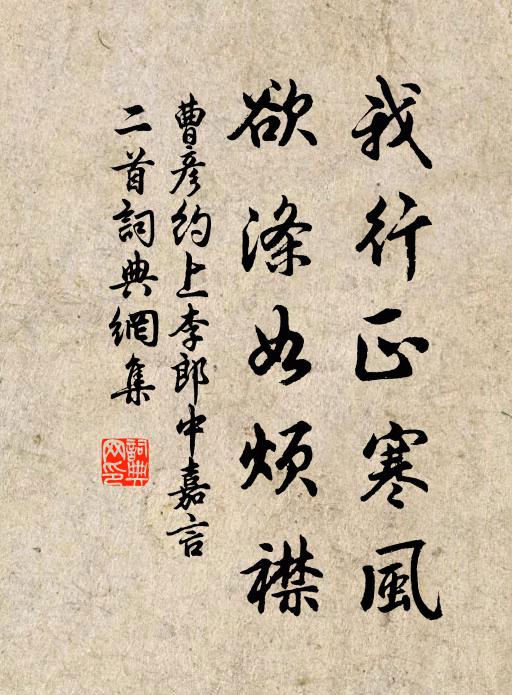 我行正寒風
欲滌如煩襟
曹彥約上李郎中嘉言
二首詞典網集
詞典
网印